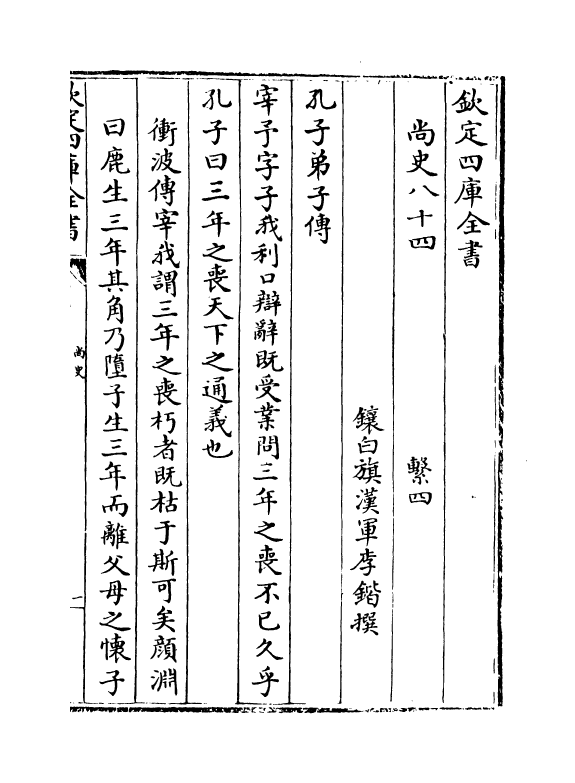 欽定四庫全書
尚史八十四　繫四
鑲白旗漢軍李鍇撰
孔子弟子傳
宰予字子我利口辯辭既受業問三年之喪不已久乎
孔子曰三年之喪天下之通義也
衝波傳宰我謂三年之喪朽者既枯于斯可矣顔淵
曰鹿生三年其角乃墮子生三年而離父母之懐子
欽定四庫全書
尚史